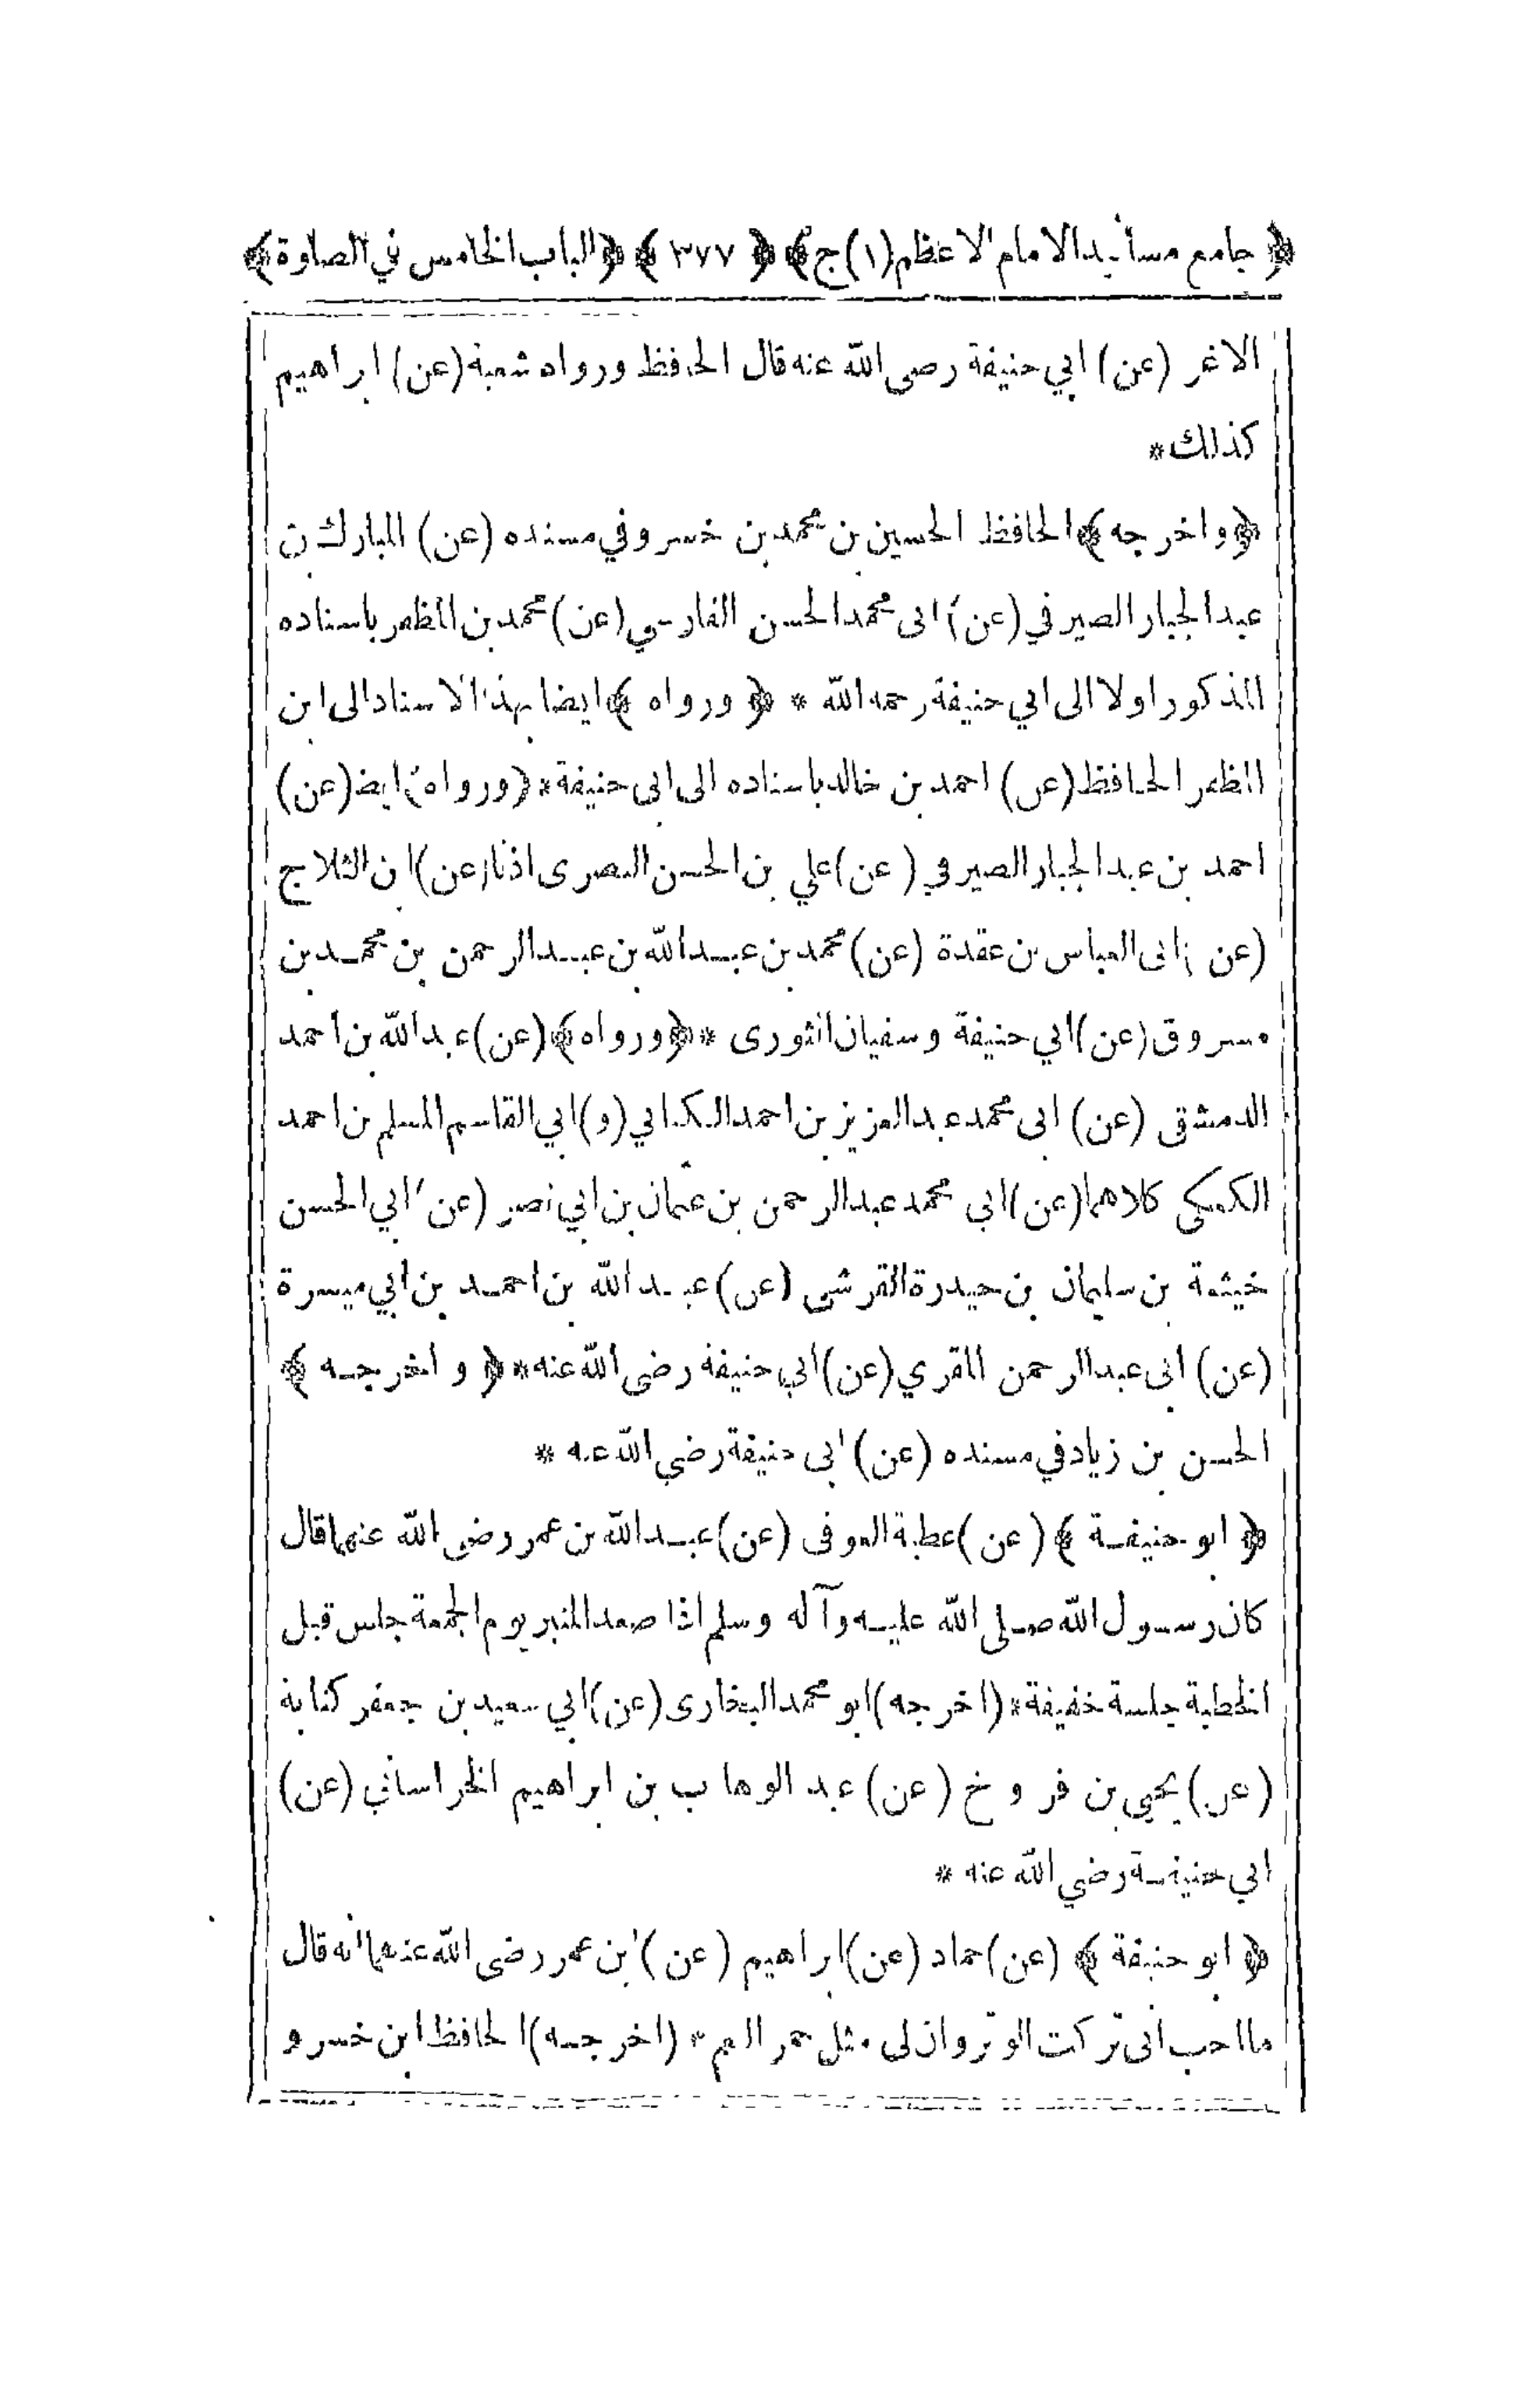 ﴿ جامع مسانيد الامام الاعظم (١) ج ﴾ ﴿ ٣٧٧ ﴾ ﴿ الباب الخامس في الصلوة ﴾
الاغر (عن) ابي حنيفة رضى الله عنه قال الحافظ ورواه شعبة (عن) ابراهيم
كذلك *
﴿ واخرجه ﴾ الحافظ الحسين بن محمد بن خسرو في مسنده (عن) المبارك بن
عبد الجبار الصيرفي (عن) ابى محمد الحسن الفارسي (عن) محمد بن المظفر باسناده
المذكور اولا الى ابي حنيفة رحمه الله * ﴿ ورواه ﴾ ايضا بهذا الاسناد الى ابن
المظفر الحافظ (عن) احمد بن خالد باسناده الى ابى حنيفة * (ورواه) ايضا (عن)
احمد بن عبد الجبار الصيرفي (عن) علي بن الحسن البصرى اذنا (عن) ابن الثلاج
(عن) ابى العباس بن عقدة (عن) محمد بن عبد الله بن عبد الرحمن بن محمد بن
مسروق (عن) ابي حنيفة وسفيان الثورى * ﴿ ورواه ﴾ (عن) عبد الله بن احمد
الدمشقى (عن) ابى محمد عبد العزيز بن احمد الكتاني (و) ابي القاسم المسلم بن احمد
كلاهما (عن) ابي محمد عبد الرحمن بن عثمان بن ابي نصر (عن) ابي الحسن
خيثمة بن سليمان بن حيدرة القرشى (عن) عبد الله بن احمد بن ابي ميسرة
(عن) ابى عبد الرحمن المقري (عن) ابي حنيفة رضى الله عنه * ﴿ واخرجه ﴾
الحسن بن زياد في مسنده (عن) ابى حنيفة رضي الله عنه *
﴿ ابو حنيفة ﴾ (عن) عطية العوفى (عن) عبد الله بن عمر رضى الله عنهما قال
كان رسول الله صلى الله عليه وآله وسلم اذا صعد المنبر يوم الجمعة جلس قبل
الخطبة جلسة خفيفة * (اخرجه) ابو محمد البخارى (عن) ابي سعيد بن جعفر كتابة
(عن) يحيى بن فروخ (عن) عبد الوهاب بن ابراهيم الخراساني (عن)
ابي حنيفة رضي الله عنه *
﴿ ابو حنيفة ﴾ (عن) حماد (عن) ابراهيم (عن) ابن عمر رضى الله عنهما انه قال
ما احب انى تركت الوتر وان لى مثل حمر النعم * (اخرجه) الحافظ ابن خسرو